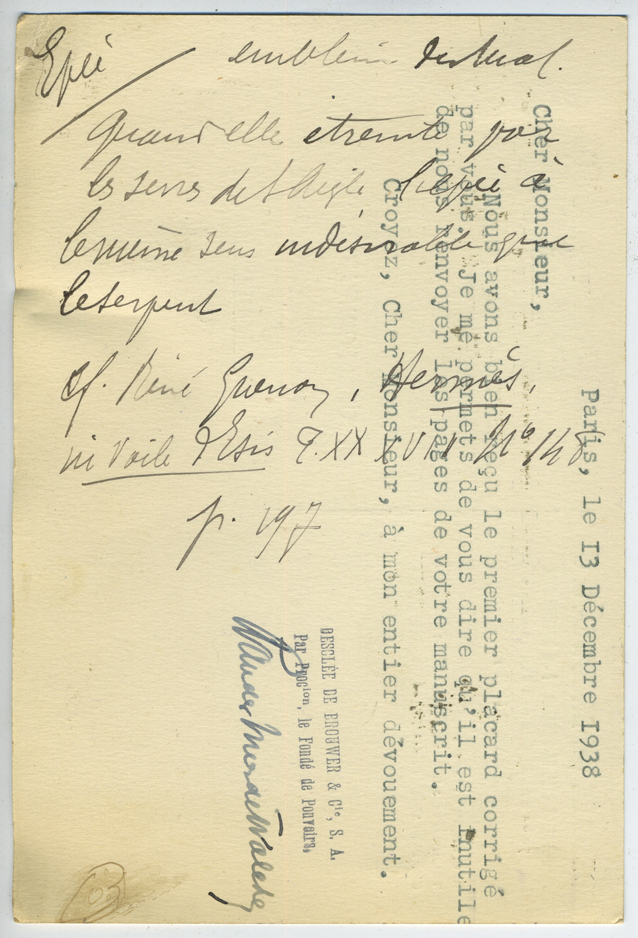 Epée
emblème du Mal.
Quand elle étreinte par
les serres de l'Aigle l'épée a
le même sens indésirable que
le serpent
cf. René Guenon, Hermès,
in Voile d'Isis T. XXXVII N° 148
p. 197
Paris, le I3 Décembre I938
Cher Monsieur,
Nous avons bien reçu le premier placard corrigé
par vous. Je me permets de vous dire qu'il est inutile
de nous renvoyer les pages de votre manuscrit.
Croyez, Cher Monsieur, à mon entier dévouement.
DESCLÉE DE BROUWER & Cie, S. A.
Par Procion, le Fondé de Pouvoirs,